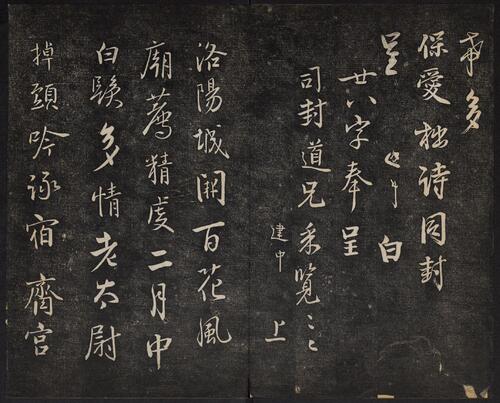 希多
保愛拙詩同封
呈 白
廿八字奉呈
司封道兄采覽
建中 上
洛陽城開百花風
廟薦精虔二月中
白鬚多情老太尉
掉頭吟詠宿齋宮